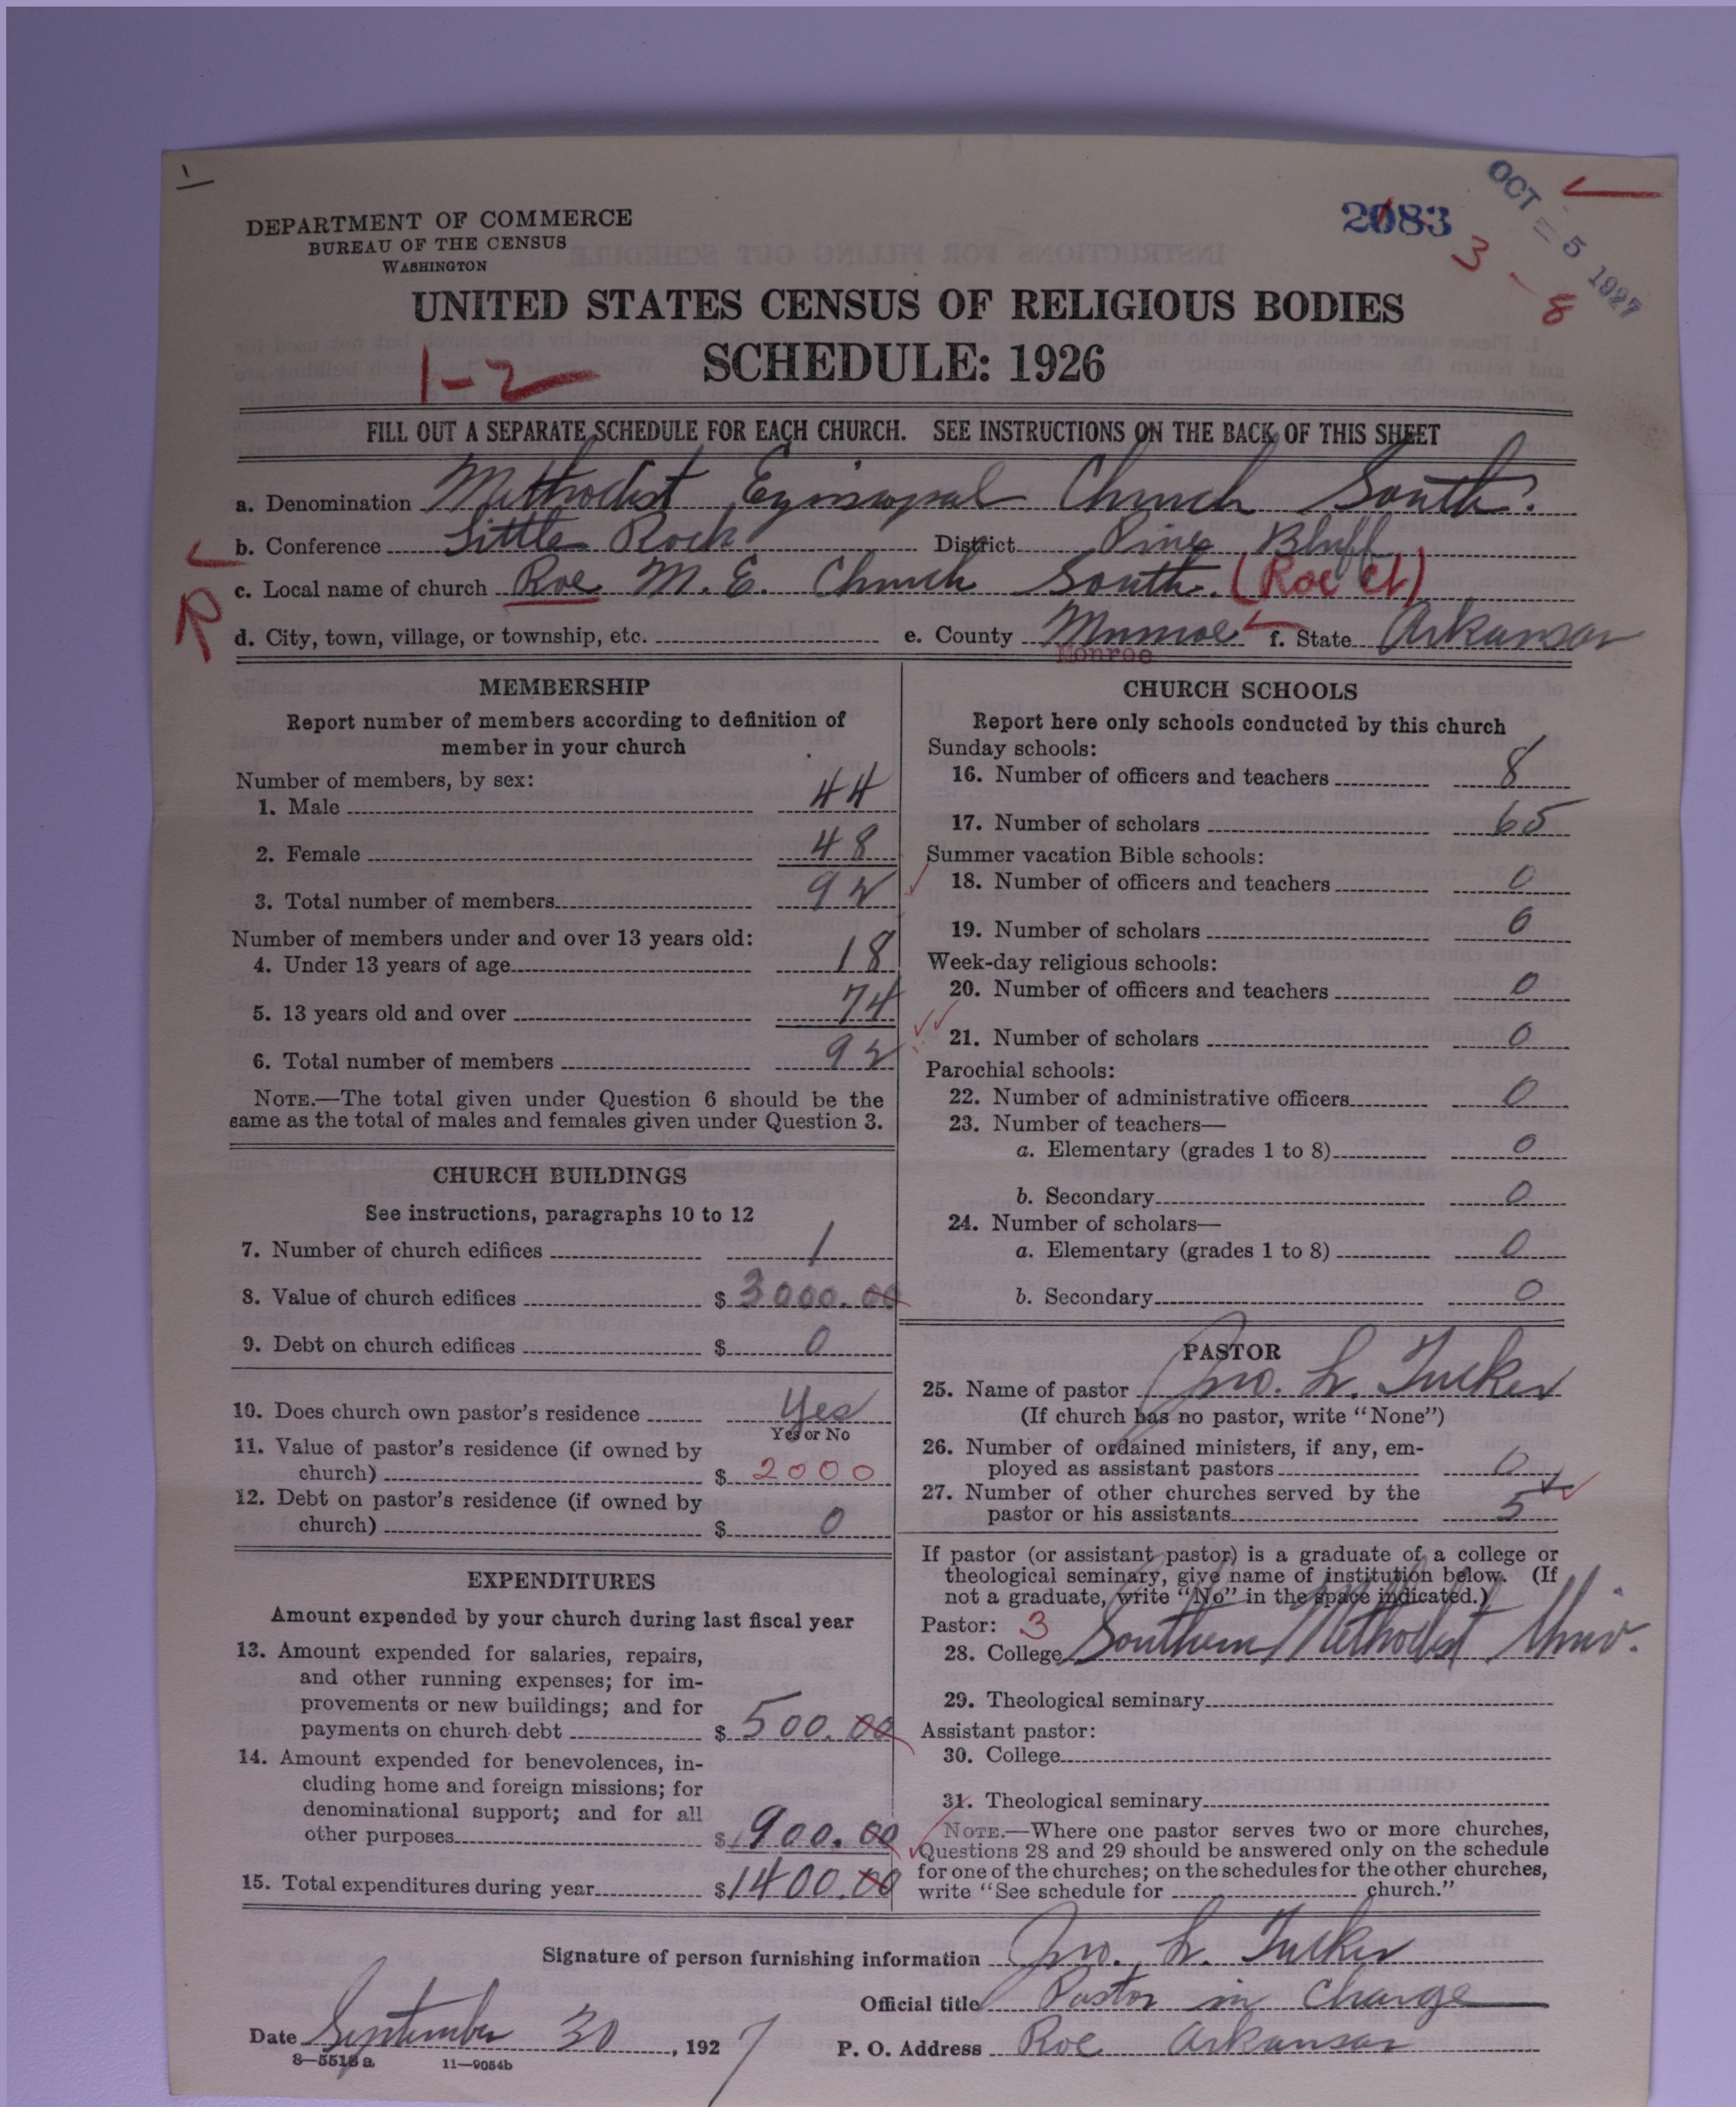 DEPARTMENT OF COMMERCE
BUREAU OF THE CENSUS
WASHINGTON
2083
OCT - 5 1927
3 - 8
UNITED STATES CENSUS OF RELIGIOUS BODIES
SCHEDULE: 1926
1-2
FILL OUT A SEPARATE SCHEDULE FOR EACH CHURCH. SEE INSTRUCTIONS ON THE BACK OF THIS SHEET
a. Denomination Methodist Episcopal Church South.
b. Conference Little Rock District Pine Bluff
c. Local name of church Roe M. E. Church South. (Roe Ct)
R
d. City, town, village, or township, etc. e. County Munroe f. State Arkansas
Monroe
MEMBERSHIP
Report number of members according to definition of
member in your church
Number of members, by sex:
1. Male 44
2. Female 48
3. Total number of members 92
Number of members under and over 13 years old:
4. Under 13 years of age 18
5. 13 years old and over 74
6. Total number of members 92
NOTE.—The total given under Question 6 should be the
same as the total of males and females given under Question 3.
CHURCH BUILDINGS
See instructions, paragraphs 10 to 12
7. Number of church edifices 1
8. Value of church edifices $ 3000.00
9. Debt on church edifices $ 0
10. Does church own pastor's residence Yes
Yes or No
11. Value of pastor's residence (if owned by
church) $ 2000
12. Debt on pastor's residence (if owned by
church) $ 0
EXPENDITURES
Amount expended by your church during last fiscal year
13. Amount expended for salaries, repairs,
and other running expenses; for im-
provements or new buildings; and for
payments on church debt $ 500.00
14. Amount expended for benevolences, in-
cluding home and foreign missions; for
denominational support; and for all
other purposes $ 900.00
15. Total expenditures during year $ 1400.00
CHURCH SCHOOLS
Report here only schools conducted by this church
Sunday schools:
16. Number of officers and teachers 8
17. Number of scholars 65
Summer vacation Bible schools:
18. Number of officers and teachers 0
19. Number of scholars 0
Week-day religious schools:
20. Number of officers and teachers 0
21. Number of scholars 0
Parochial schools:
22. Number of administrative officers 0
23. Number of teachers—
a. Elementary (grades 1 to 8) 0
b. Secondary 0
24. Number of scholars—
a. Elementary (grades 1 to 8) 0
b. Secondary 0
PASTOR
25. Name of pastor Jno. L. Tucker
(If church has no pastor, write "None")
26. Number of ordained ministers, if any, em-
ployed as assistant pastors 0
27. Number of other churches served by the
pastor or his assistants 5
If pastor (or assistant pastor) is a graduate of a college or
theological seminary, give name of institution below. (If
not a graduate, write "No" in the space indicated.)
Pastor: 3
28. College Southern Methodist Univ.
29. Theological seminary
Assistant pastor:
30. College
31. Theological seminary
NOTE.—Where one pastor serves two or more churches,
Questions 28 and 29 should be answered only on the schedule
for one of the churches; on the schedules for the other churches,
write "See schedule for church."
Signature of person furnishing information Jno. L. Tucker
Official title Pastor in Charge
Date September 30, 1927 P. O. Address Roe Arkansas
8—5518 a 11—9054b